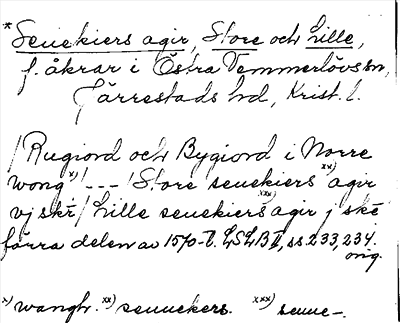 * Seuekiers agir, Store och Lille,
f. åkrar i Östra Vemmerlövs sn,
Järrestads hd, Krist. l.
/Rugiord och Bygiord i Norre
wong x)/ - - - /Store seuekiers xx) agir
vj skr/ Lille seuekiers xxx) agir j ske
förra delen av 1570-t. LSLB II, ss 233, 234.
orig.
x) wangh. xx) seuuekers. xxx) seuue-.